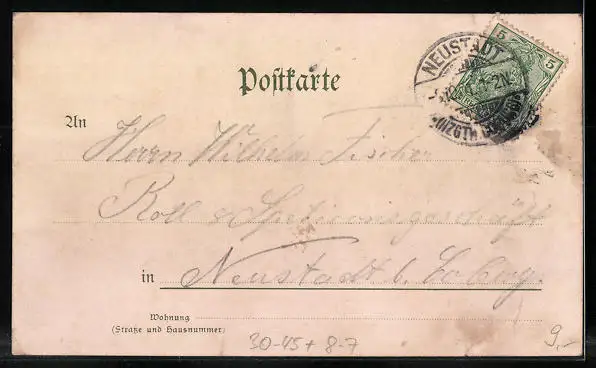 Postkarte
5 5
NEUSTADT
1-2N
(HZGTH. COBURG)
An
Herrn Wilhelm Fischer
Roll & Speditionsgeschäft
in Neustadt b. Coburg.
Wohnung
(Straße und Hausnummer)
30-45+8-7
9,-